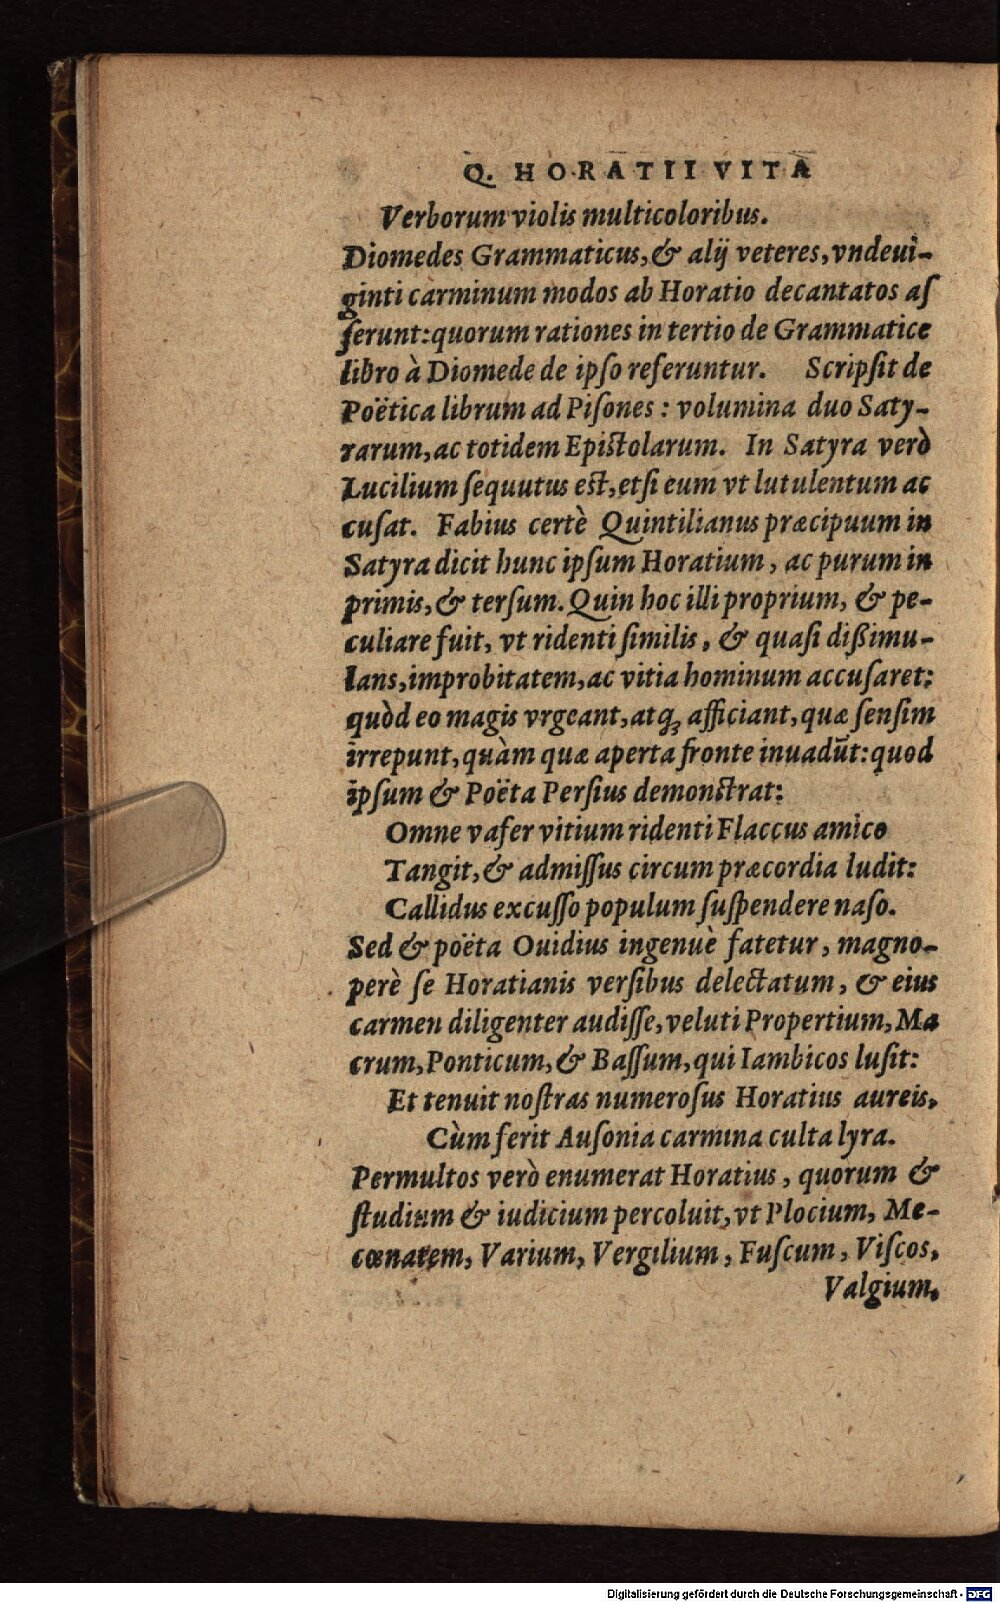 Q. HORATII VITA
Verborum violis multicoloribus.
Diomedes Grammaticus, & alij veteres, vndeui-
ginti carminum modos ab Horatio decantatos aſ
ſerunt: quorum rationes in tertio de Grammatice
libro à Diomede de ipſo referuntur. Scripſit de
Poëtica librum ad Piſones: volumina duo Saty-
rarum, ac totidem Epiſtolarum. In Satyra verò
Lucilium ſequutus eſt, etſi eum vt lutulentum ac
cuſat. Fabius certè Quintilianus præcipuum in
Satyra dicit hunc ipſum Horatium, ac purum in
primis, & terſum. Quin hoc illi proprium, & pe-
culiare fuit, vt ridenti ſimilis, & quaſi dißimu-
lans, improbitatem, ac vitia hominum accuſaret:
quòd eo magis vrgeant, atq; afficiant, quæ ſenſim
irrepunt, quàm quæ aperta fronte inuadūt: quod
ipſum & Poëta Perſius demonſtrat:
Omne vafer vitium ridenti Flaccus amico
Tangit, & admiſſus circum præcordia ludit:
Callidus excuſſo populum ſuſpendere naſo.
Sed & poëta Ouidius ingenuè fatetur, magno-
perè ſe Horatianis verſibus delectatum, & eius
carmen diligenter audiſſe, veluti Propertium, Ma
crum, Ponticum, & Baſſum, qui Iambicos luſit:
Et tenuit noſtras numeroſus Horatius aureis,
Cùm ferit Auſonia carmina culta lyra.
Permultos verò enumerat Horatius, quorum &
ſtudium & iudicium percoluit, vt Plocium, Me-
cœnatem, Varium, Vergilium, Fuſcum, Viſcos,
Valgium,
Digitalisierung gefördert durch die Deutsche Forschungsgemeinschaft - DFG